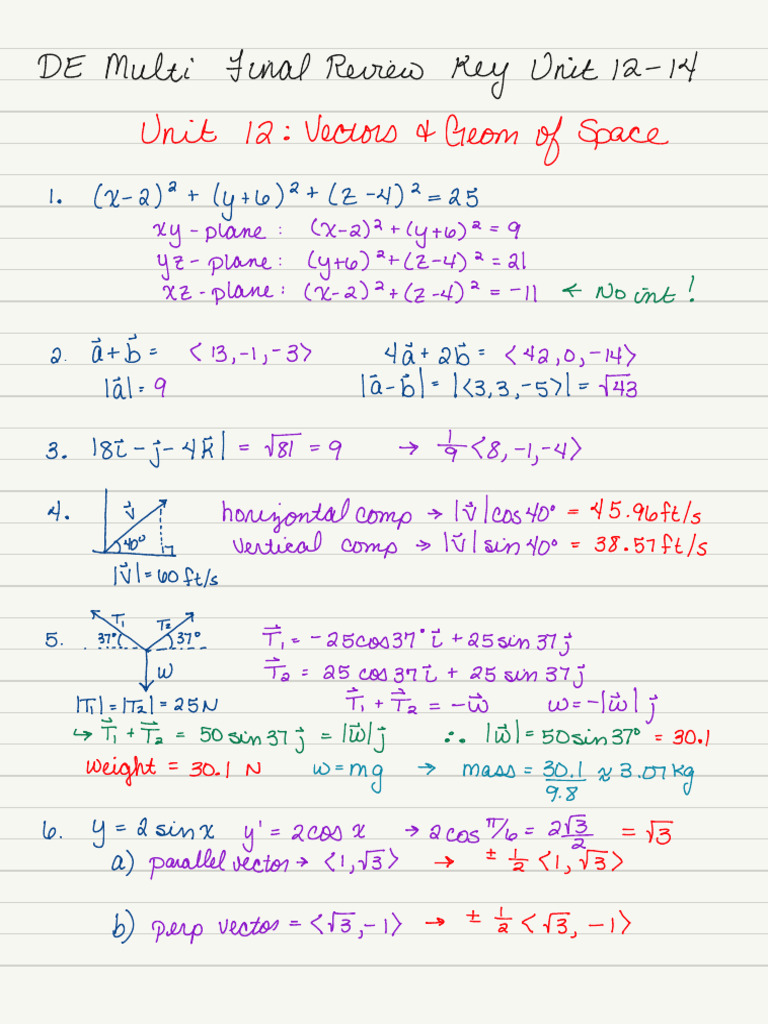 DE Multi Final Review Key Unit 12-14
Unit 12: Vectors & Geom of Space
1. (x-2)² + (y+6)² + (z-4)² = 25
xy-plane: (x-2)² + (y+6)² = 9
yz-plane: (y+6)² + (z-4)² = 21
xz-plane: (x-2)² + (z-4)² = -11 ← No int!
2. a⃗ + b⃗ = ⟨13, -1, -3⟩ 4a⃗ + 2b⃗ = ⟨42, 0, -14⟩
|a⃗| = 9 |a⃗ - b⃗| = |⟨3, 3, -5⟩| = √43
3. |8i⃗ - j⃗ - 4k⃗| = √81 = 9 → 1/9 ⟨8, -1, -4⟩
4. v⃗ 40° horizontal comp → |v⃗|cos40° = 45.96 ft/s
vertical comp → |v⃗|sin40° = 38.57 ft/s
|v⃗| = 60 ft/s
5. T₁ T₂ 37° 37° W T⃗₁ = -25cos37° i⃗ + 25sin37 j⃗
T⃗₂ = 25cos37 i⃗ + 25sin37 j⃗
|T₁| = |T₂| = 25N T⃗₁ + T⃗₂ = -w⃗ w = -|w⃗| j
↳ T⃗₁ + T⃗₂ = 50sin37 j⃗ = |w⃗| j ∴ |w⃗| = 50sin37° = 30.1
weight = 30.1 N w = mg → mass = 30.1/9.8 ≈ 3.07kg
6. y = 2sinx y' = 2cosx → 2cos π/6 = 2√3/2 = √3
a) parallel vector → ⟨1, √3⟩ → ± 1/2 ⟨1, √3⟩
b) perp vector = ⟨√3, -1⟩ → ± 1/2 ⟨√3, -1⟩